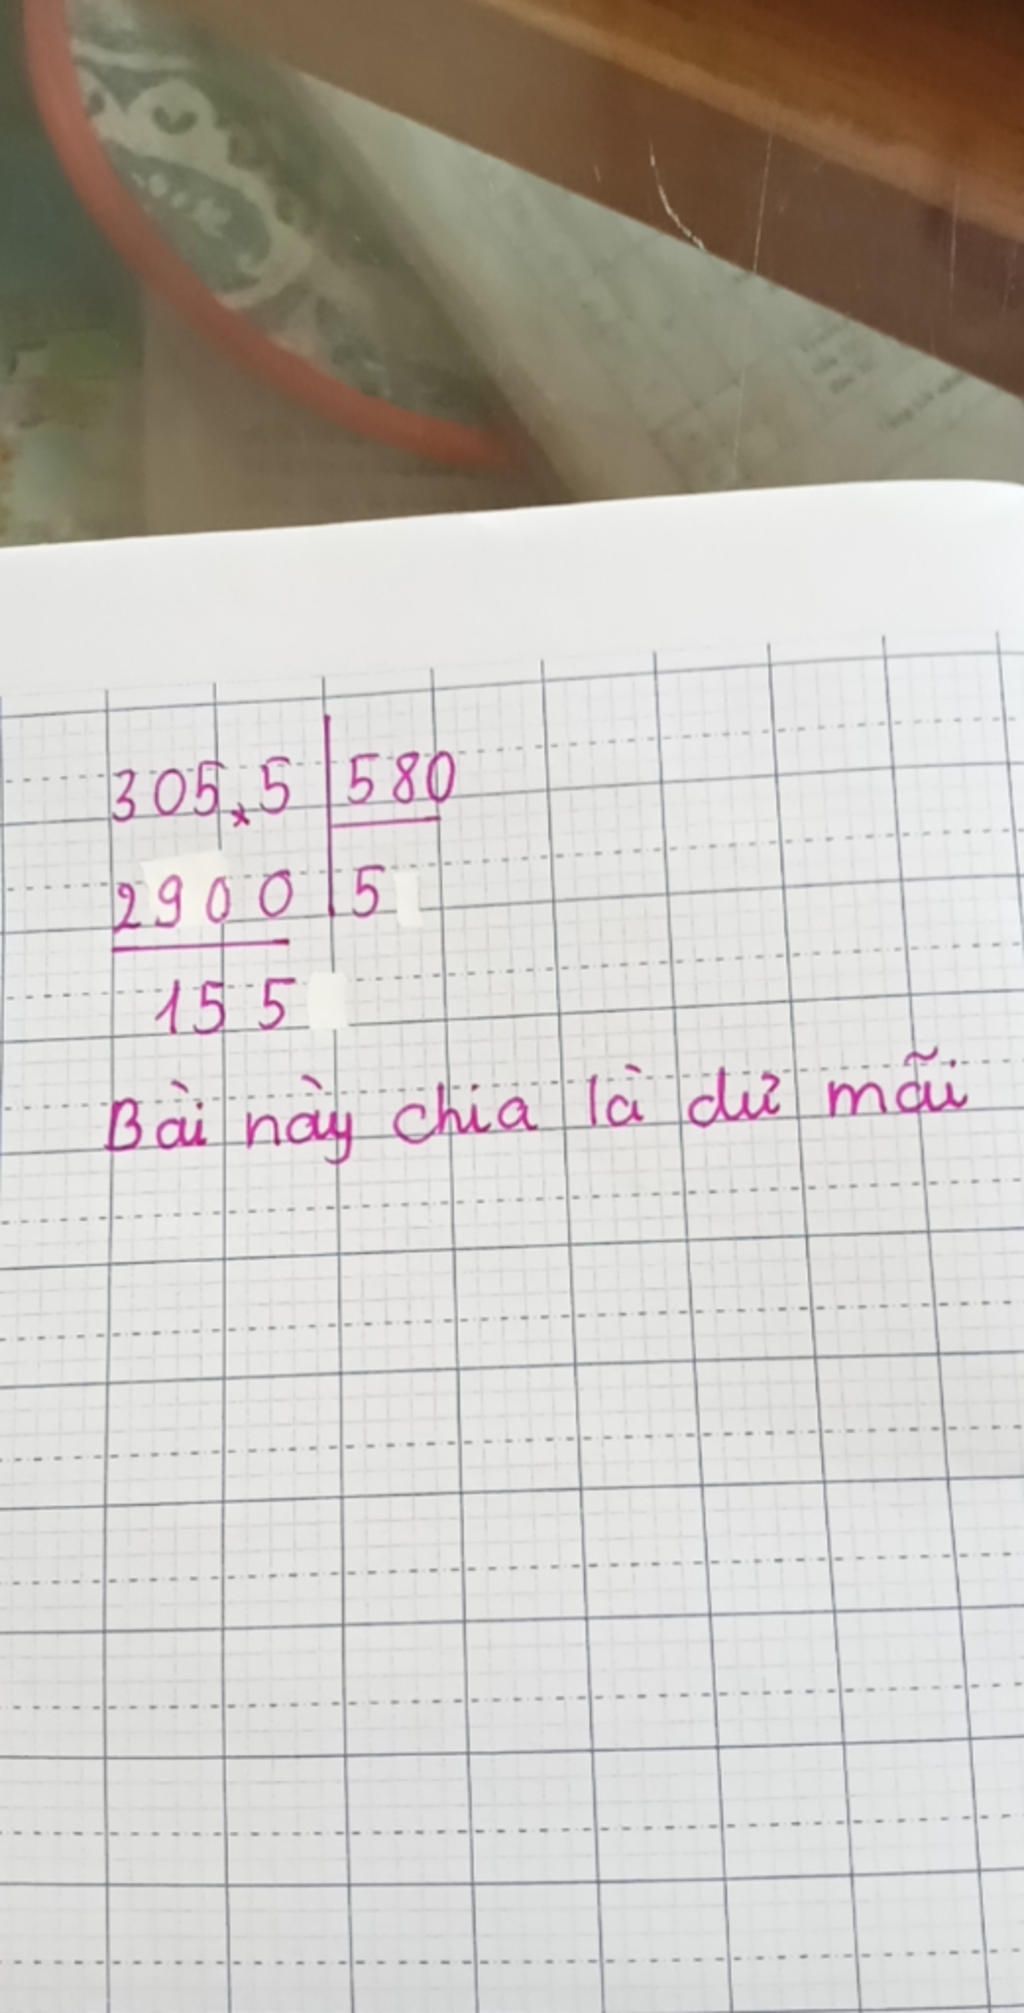 305,5 580
2900 5
155
Bài này chia là dư mãi